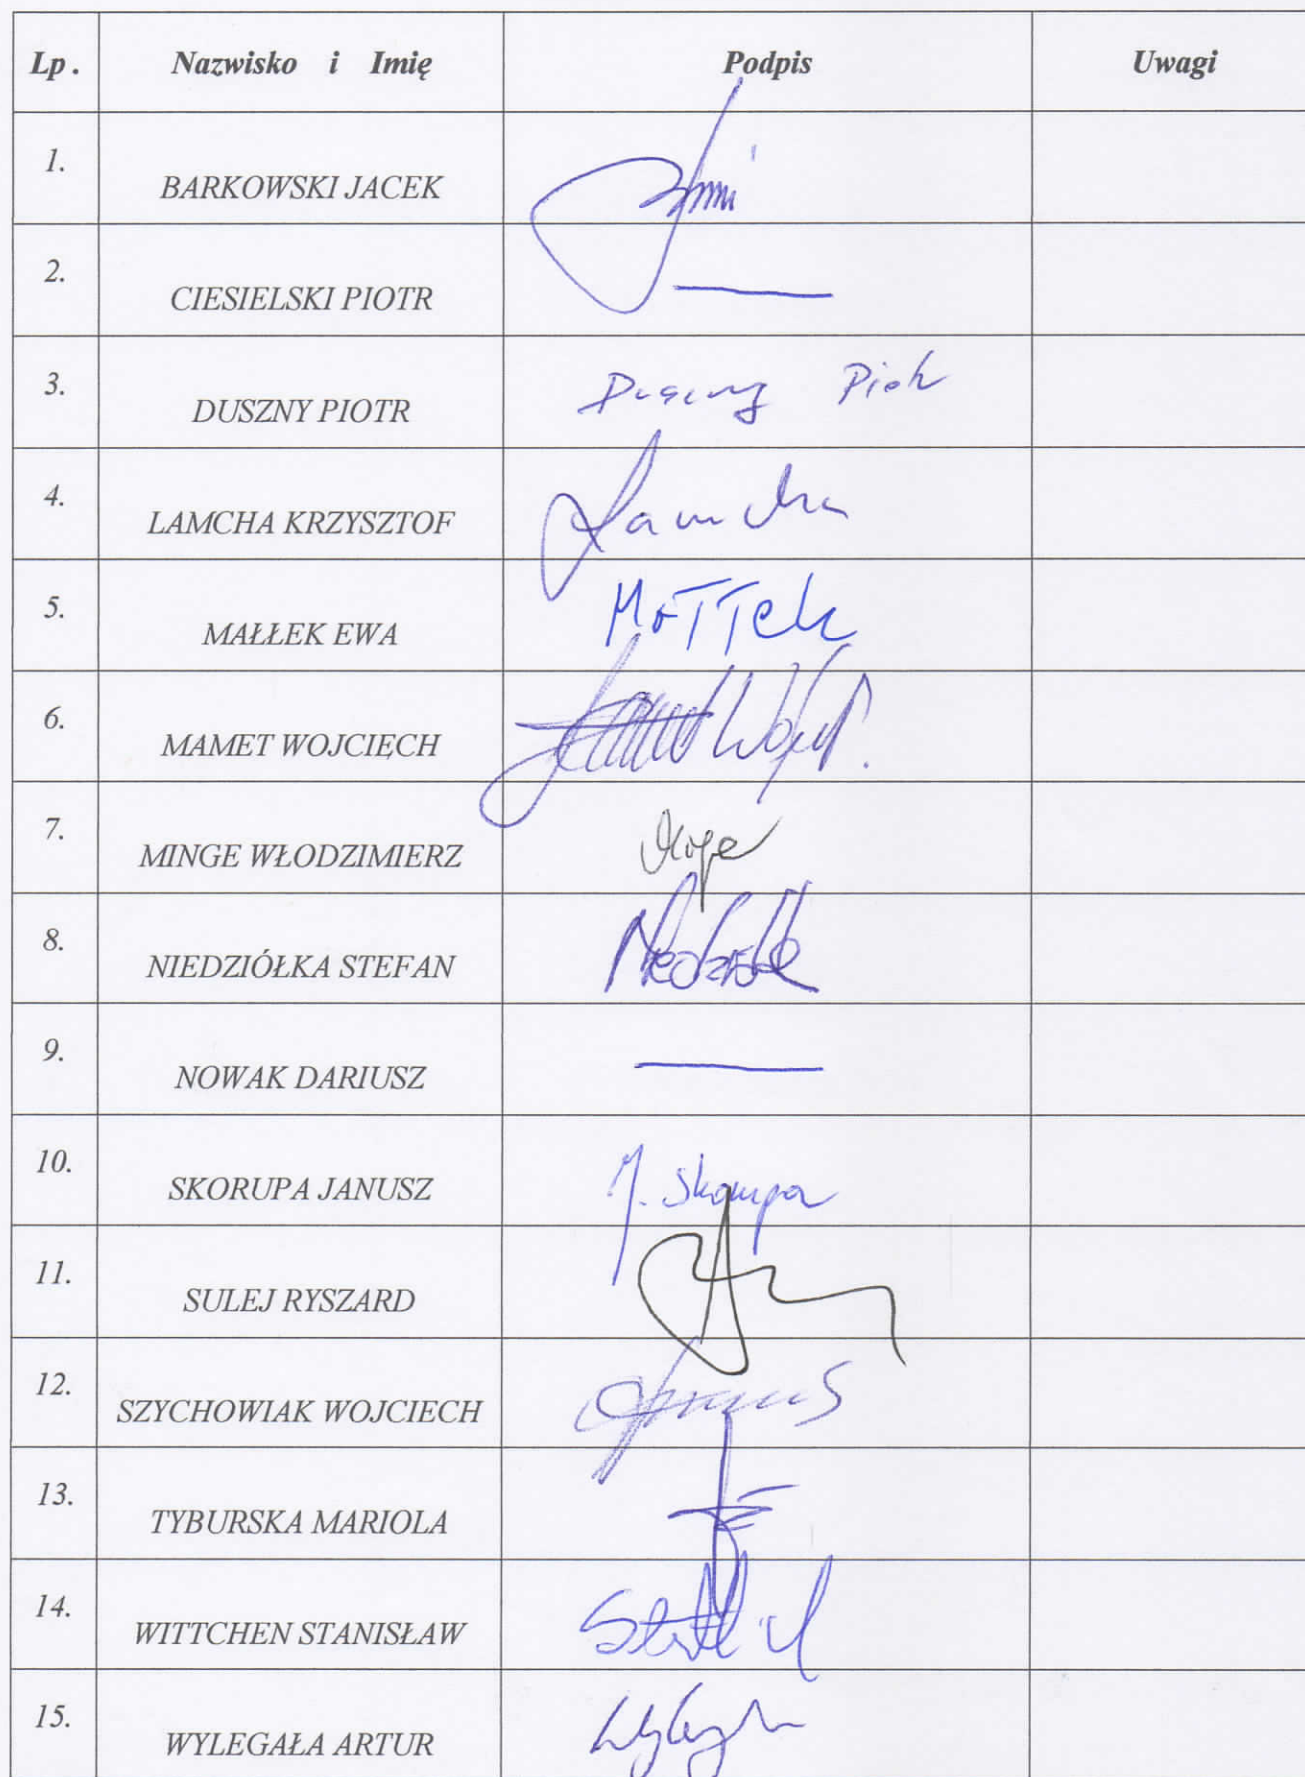 Lp. Nazwisko i Imię Podpis Uwagi
1. BARKOWSKI JACEK
2. CIESIELSKI PIOTR
3. DUSZNY PIOTR
4. LAMCHA KRZYSZTOF Lamcha
5. MAŁŁEK EWA
6. MAMET WOJCIECH
7. MINGE WŁODZIMIERZ
8. NIEDZIÓŁKA STEFAN
9. NOWAK DARIUSZ
10. SKORUPA JANUSZ J. Skorupa
11. SULEJ RYSZARD
12. SZYCHOWIAK WOJCIECH
13. TYBURSKA MARIOLA
14. WITTCHEN STANISŁAW
15. WYLEGAŁA ARTUR